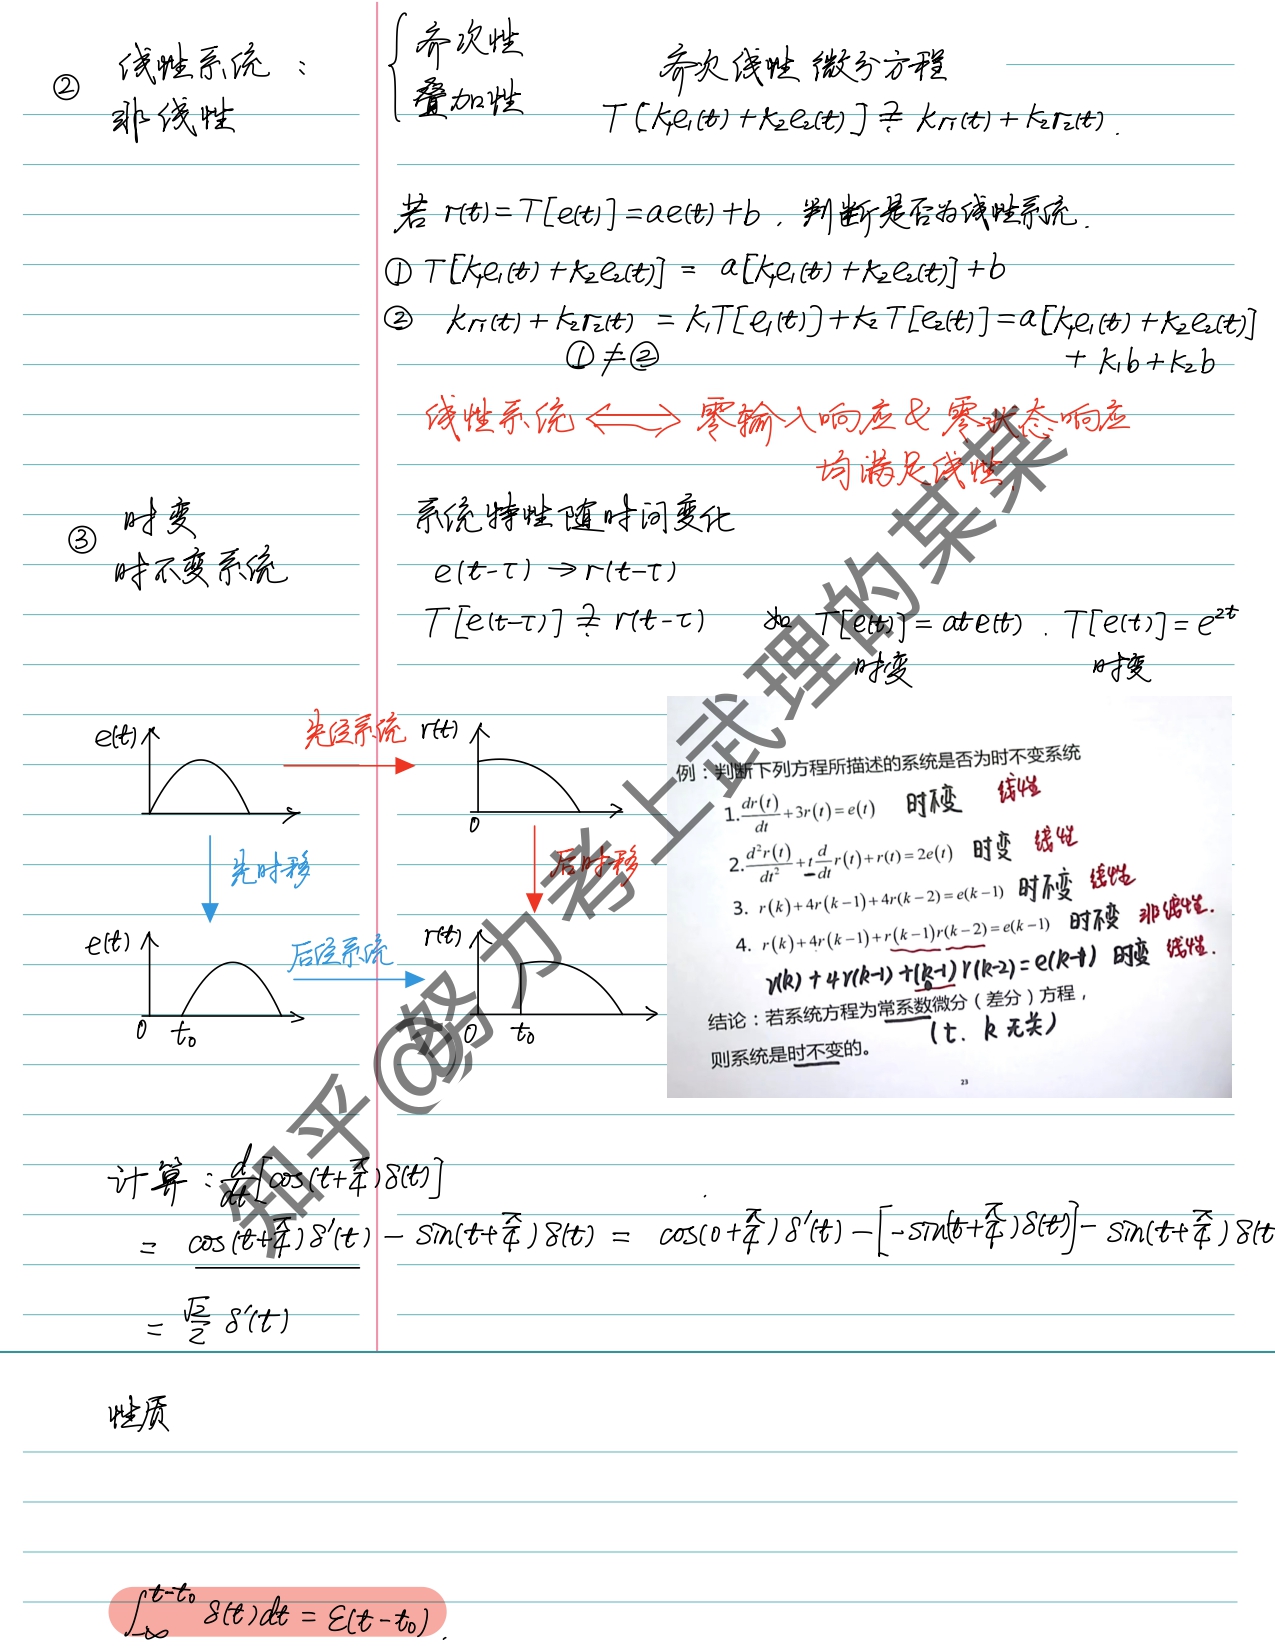 ② 线性系统：
非线性
齐次性
叠加性
齐次线性微分方程
T[k₁e₁(t)+k₂e₂(t)] ≟ k₁r₁(t)+k₂r₂(t).
若 r(t)=T[e(t)]=ae(t)+b，判断是否为线性系统.
① T[k₁e₁(t)+k₂e₂(t)] = a[k₁e₁(t)+k₂e₂(t)]+b
② k₁r₁(t)+k₂r₂(t) = k₁T[e₁(t)]+k₂T[e₂(t)]=a[k₁e₁(t)+k₂e₂(t)]
+ k₁b+k₂b
①≠②
线性系统 ⟺ 零输入响应 & 零状态响应
均满足线性.
③ 时变
时不变系统
系统特性随时间变化
e(t-τ) → r(t-τ)
T[e(t-τ)] ≟ r(t-τ) 如 T[e(t)]=ate(t) . T[e(t)]=e²ᵗ
时变 时变
e(t) 先经系统 r(t)
0
先时移 后时移
e(t) 后经系统 r(t)
0 t₀ 0 t₀
例：判断下列方程所描述的系统是否为时不变系统
1. dr(t)/dt+3r(t)=e(t) 时不变 线性
2. d²r(t)/dt²+t d/dt r(t)+r(t)=2e(t) 时变 线性
3. r(k)+4r(k-1)+4r(k-2)=e(k-1) 时不变 线性
4. r(k)+4r(k-1)+r(k-1)r(k-2)=e(k-1) 时不变 非线性.
r(k)+4r(k-1)+(k-1)r(k-2)=e(k-1) 时变 线性.
结论：若系统方程为常系数微分（差分）方程，
(t、k无关)
则系统是时不变的。
23
计算：d/dt[cos(t+π/4)δ(t)]
= cos(t+π/4)δ'(t) - sin(t+π/4)δ(t) = cos(0+π/4)δ'(t)-[-sin(t+π/4)δ(t)]-sin(t+π/4)δ(t
= √2/2 δ'(t)
性质
∫₋∞^(t-t₀) δ(t)dt = ε(t-t₀).
知乎@努力考上武理的某某